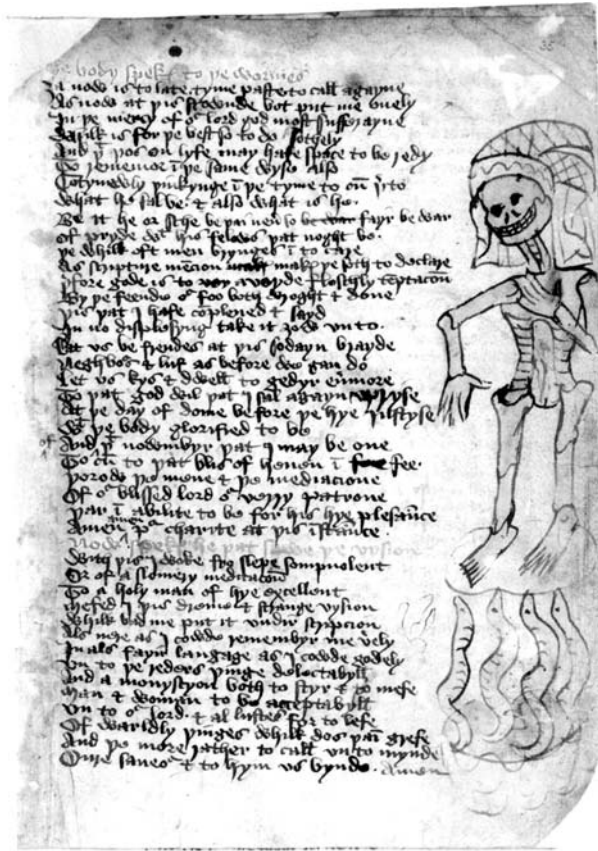 þe body spekes to þe wormes
Za now is to late tyme paste to call agayne
As now at þis stownde bot put me onely
In þe mercy of oʳ lord god most sufferayne
Whilk is for þe best so to do sothely
And þᵗ þos on lyfe may hafe space to be redy
To rememor ī þe same wyse also
Cōtynewly þinkynge ī þe tyme to cū
What he sal be & also what is he
Be at he or sche be þai neuer so fayr be war
of pryde wᵗ his felows þat noght be
þe whilk oft men brynges ī to care
As scripture mencion makz þe soth to declare
þʳfore gode is to avoyde fleschly tēptacōn
By þe feende oʳ foo both wroght & done
þis þat I hafe cōplened & sayd
In no displesyng take it zow vn to
Lat vs be frendes at þis sodayn brayde
Neghboʳs & luf as before we gan do
Let vs kys & dwell to gedyr euermore
To þat god wil þat I sal agayn vpryse
At þe day of dome before þe hye iustyse
Wᵗ þe body glorified to be
And of þᵗ nowmbyr þat I may be one
To cū to þat blis of heuen ī fee
þorow þe mene & þe mediacione
Of oʳ blissed lord oʳ verry patrone
þar ī abilite to be for his hye plesaūce
Amen amen pʳ charite at þis īstaūce
Now spekes he þat sawe þe vysion
With þis I woke fro slepe sompnolent
Or of a slomery meditacōn
To a holy man of hye excellent
I þis dreme & strange vysion
Whilk bad me put it vndir scripcion
Als nere as I cowde remembyr me vely
In als fayr langage as I cowde godely
Vn to þe reders þinge delectabyll
And a monystyon both to styr & to mefe
Man & woman to be acceptabyll
Vn to oʳ lord & al lustes for to lefe
Of warldly þinges whilk dos þaī grefe
And þe more rather to call vn to mynde
Oure saueoʳ & to hym vs bynde. Amen